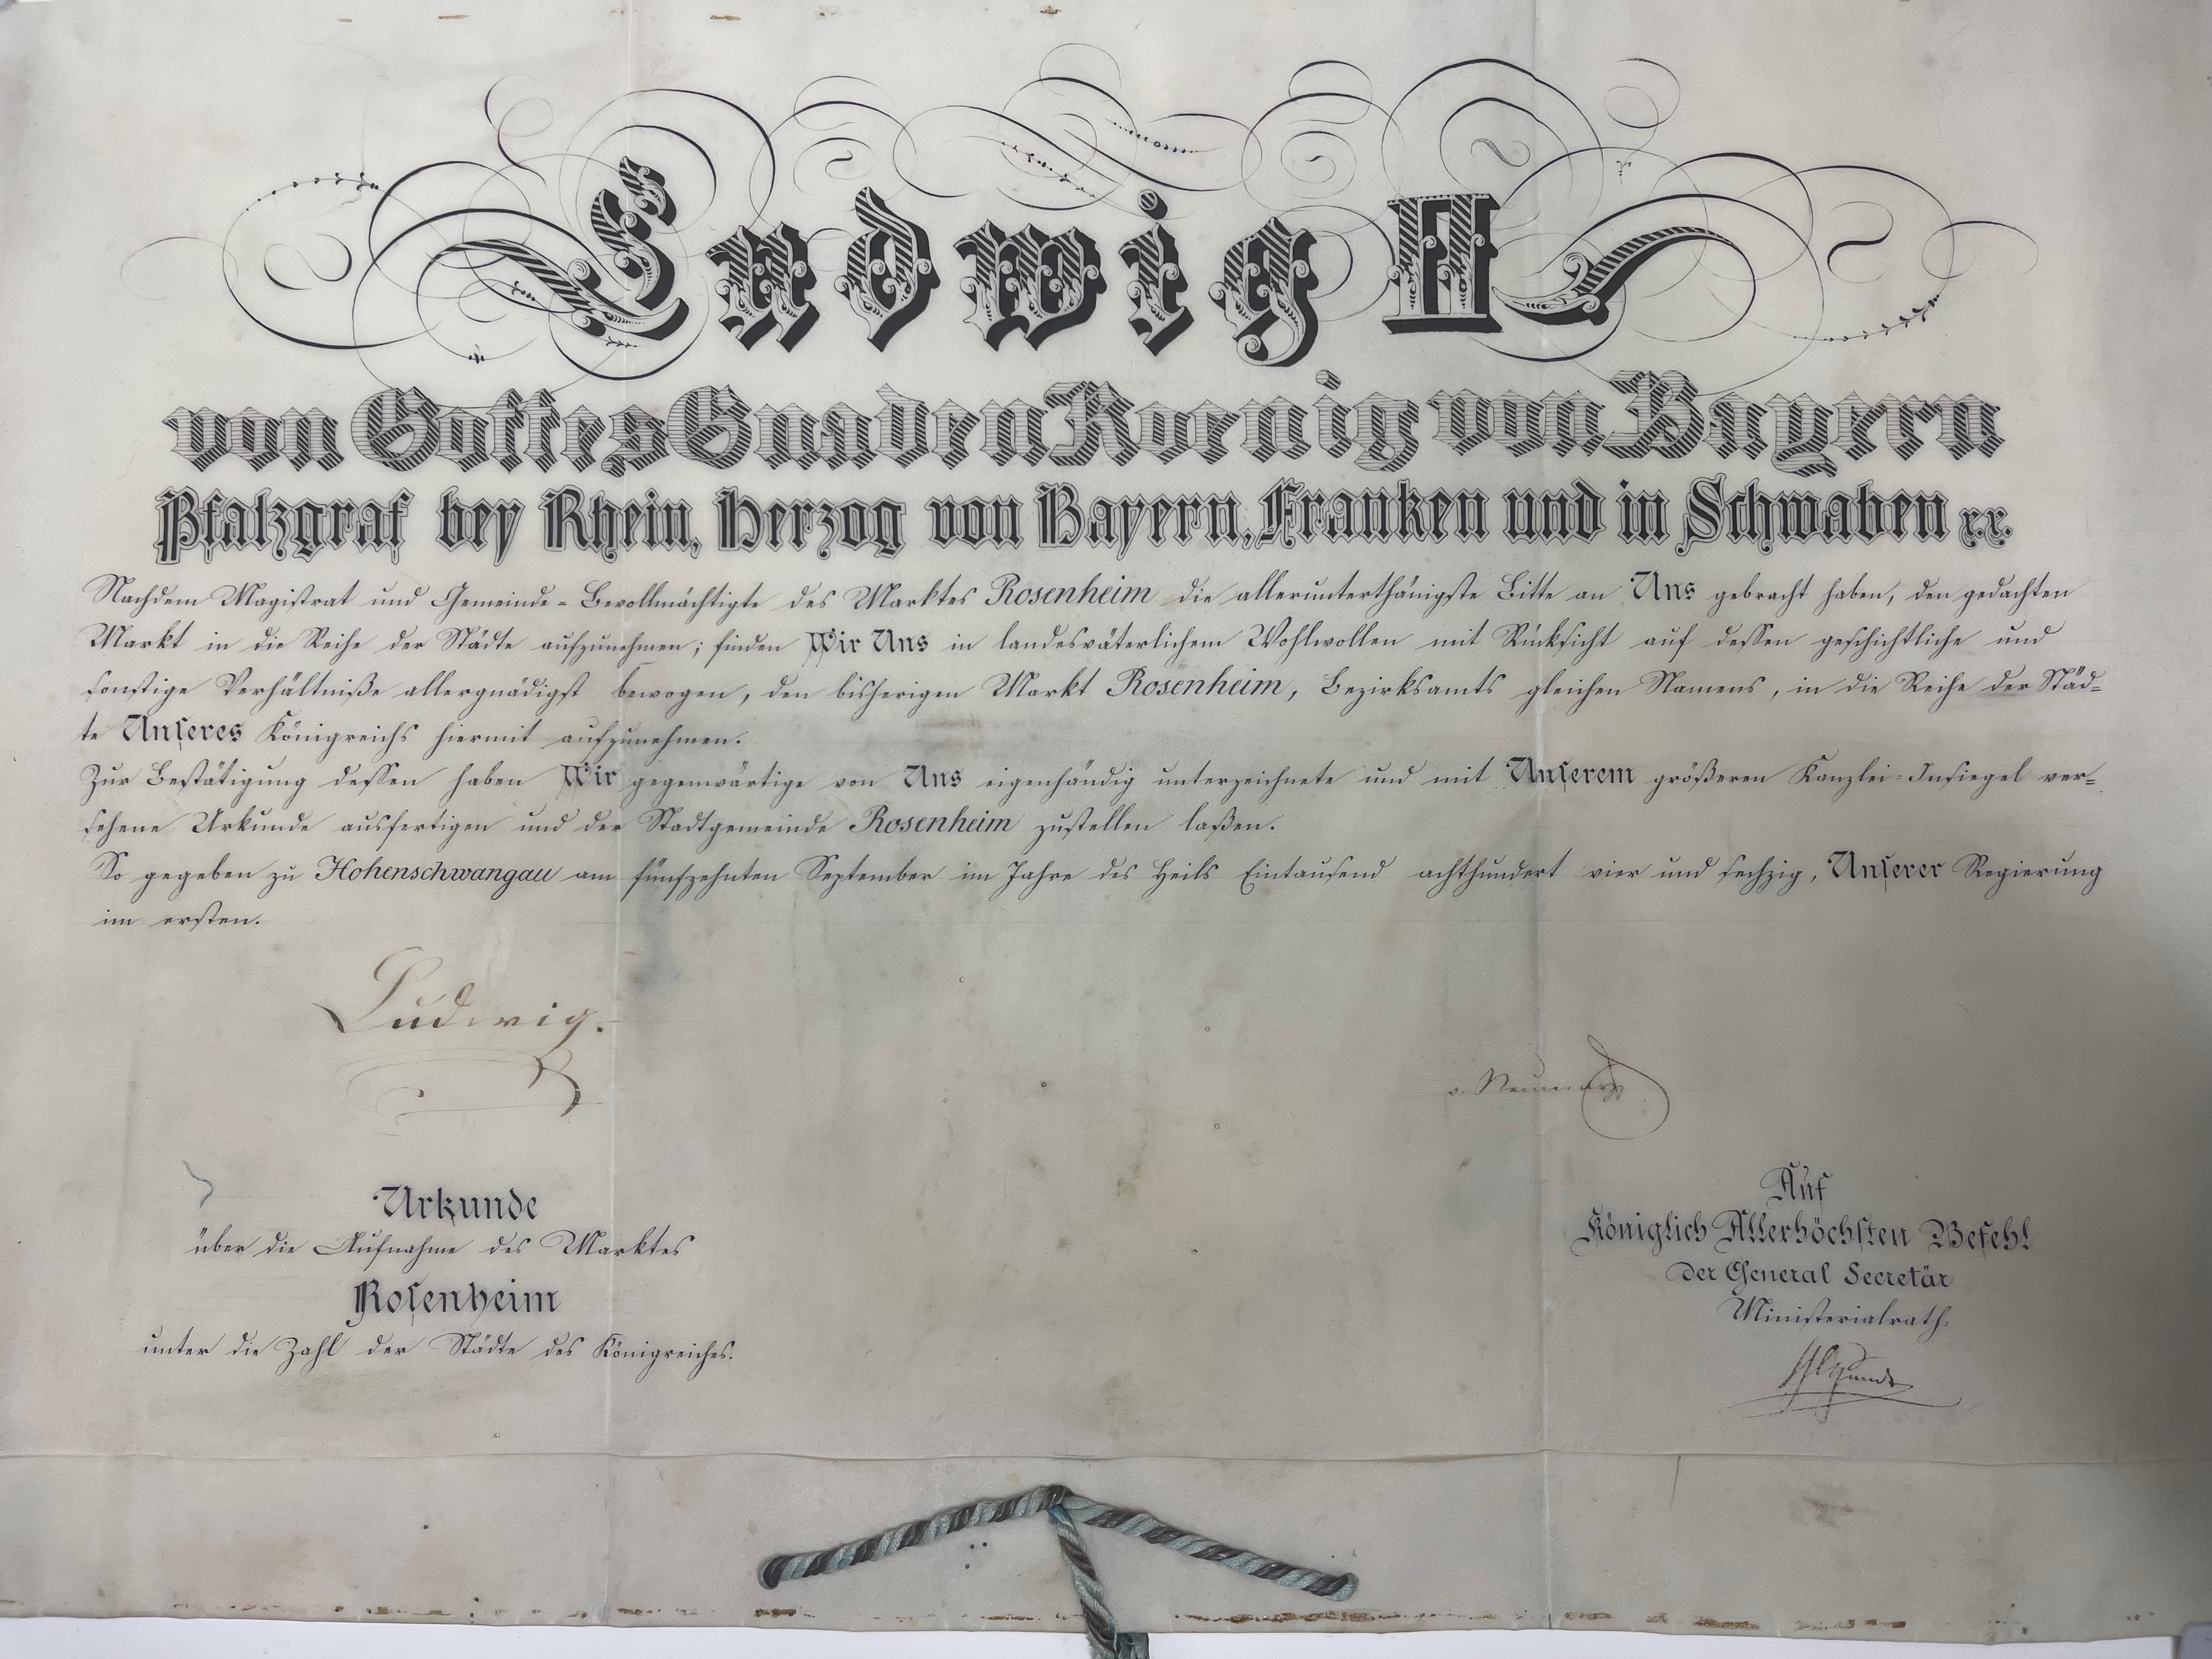 Ludwig II
von Gottes Gnaden Koenig von Bayern
Pfalzgraf bey Rhein, Herzog von Bayern, Franken und in Schwaben xx.
Nachdem Magistrat und Gemeinde-Bevollmächtigte des Marktes Rosenheim die allerunterthänigste Bitte an Uns gebracht haben, den gedachten
Markt in die Reihe der Städte aufzunehmen; finden Wir Uns in landesväterlichem Wohlwollen mit Rücksicht auf dessen geschichtliche und
sonstige Verhältniße allergnädigst bewogen, den bisherigen Markt Rosenheim, Bezirksamts gleichen Namens, in die Reihe der Städ-
te Unseres Königreichs hiermit aufzunehmen.
Zur Bestätigung dessen haben Wir gegenwärtige von Uns eigenhändig unterzeichnete und mit Unserem größeren Kanzlei-Insiegel ver-
sehene Urkunde ausfertigen und der Stadtgemeinde Rosenheim zustellen laßen.
So gegeben zu Hohenschwangau am fünfzehnten September im Jahre des Heils Eintausend achthundert vier und sechzig, Unserer Regierung
im ersten.
Ludwig.
v. Neumayr
Urkunde
über die Aufnahme des Marktes
Rosenheim
unter die Zahl der Städte des Königreiches.
Auf
Königlich Allerhöchsten Befehl
der General Secretär
Ministerialrath: